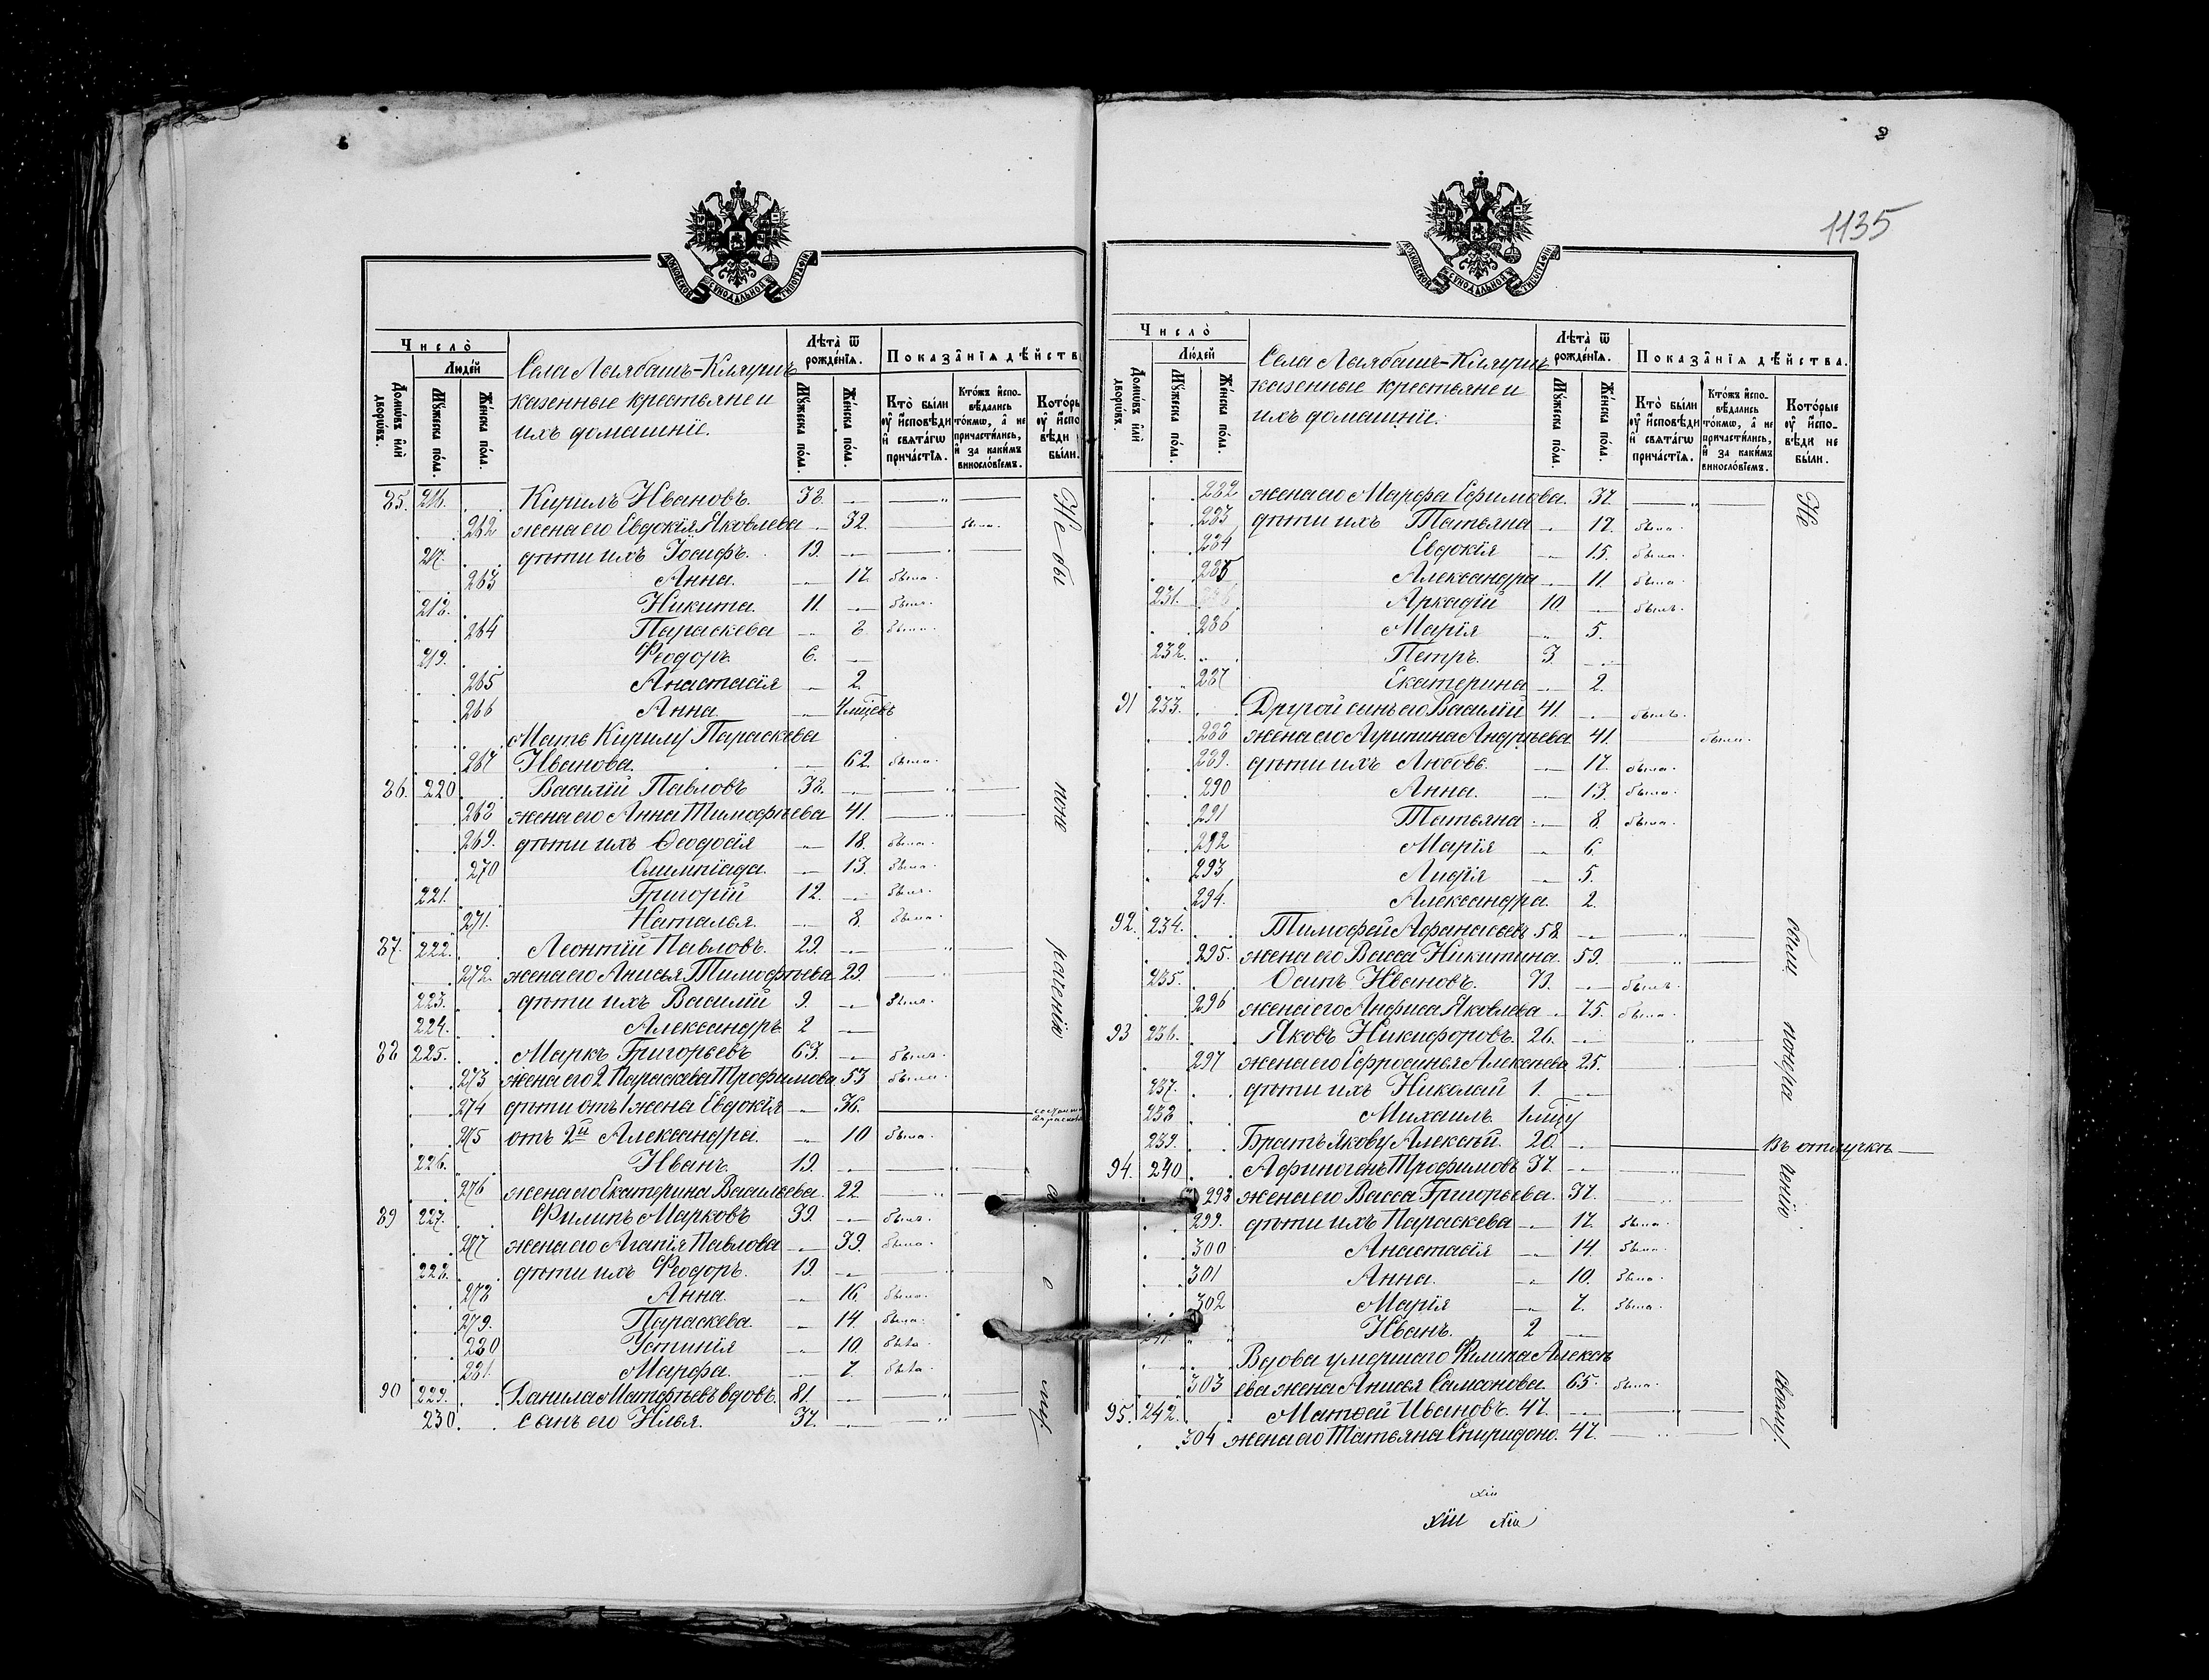 1135
МОСКОВСКОЙ СѴНОДАЛЬНОЙ ТИПОГРАФІИ
Число̀
Люде́й
Домѡ́въ и҆лѝ дворѡ́въ.
Мꙋ́жеска по́ла.
Же́нска по́ла.
Села Альябашъ-Кляушъ
казенные крестьяне и
ихъ домашніе.
Лѣ́та ѿ рожде́нїѧ.
Мꙋ́жеска по́ла.
Же́нска по́ла.
Показа̑нїѧ дѣ́йств
Кто̀ бы́ли ᲂу҆ и҆сповѣ́ди и҆ свѧта́гѡ прича́стїѧ.
Кто́жъ и҆сповѣ́дались то́кмѡ, а҆ не причасти́лись, и҆ за каки́мъ винослѡ́вїемъ.
Кото́ры ᲂу҆ и҆сповѣ́ди бы́ли.
85. 216. Кирилъ Ивановъ. 38.
262 жена его Евдокія Яковлева 32. была.
217. дѣти ихъ Іосифъ. 19.
263 Анна. 17. была.
218. Никита. 11. былъ.
264 Параскева 8. была.
219. Феодоръ. 6.
265 Анастасія 2.
266 Анна.
Мать Кирилу Параскева
267 Иванова. 62. была.
86. 220 Василій Павловъ 38.
268 жена его Анна Тимофѣева 41.
269. дѣти ихъ Ѳеодосія 18. была.
270 Олимпіада. 13. была.
221. Григорій 12. былъ.
271. Наталья. 8. была.
87. 222. Леонтій Павловъ. 29.
272. жена его Анисья Тимофѣева 29.
223. дѣти ихъ Василій 9. былъ.
224. Александръ 2
88 225. Маркъ Григорьевъ 63. былъ.
273 жена его 2 Параскева Трофимова 53 была.
274 дѣти отъ 1 жена Евдокія 36.
275 отъ 2й Александра. 10 была.
226. Иванъ. 19.
276 жена его Екатерина Васильева. 22
89 227. Филипъ Марковъ 39. былъ.
277 жена его Агапія Павлова 39. была.
228. дѣти ихъ Феодоръ. 19.
278 Анна. 16. была.
279. Параскева. 14. была.
280 Устинія 10. была.
281. Марфа. 7. была.
90 229. Данила Матфѣевъ вдовъ. 81.
230. сынъ его Илья. 37.
Не бы
Число̀
Люде́й
Домѡ́въ и҆лѝ дворѡ́въ.
Мꙋ́жеска по́ла.
Же́нска по́ла.
Села Альябашъ-Кляушъ
казенные крестьяне и
ихъ домашніе.
Лѣ́та ѿ рожде́нїѧ.
Мꙋ́жеска по́ла.
Же́нска по́ла.
Показа̑нїѧ дѣ́йства.
Кто̀ бы́ли ᲂу҆ и҆сповѣ́ди и҆ свѧта́гѡ прича́стїѧ.
Кто́жъ и҆сповѣ́дались то́кмѡ, а҆ не причасти́лись, и҆ за каки́мъ винослѡ́вїемъ.
Кото́рые ᲂу҆ и҆сповѣ́ди не бы́ли.
282 жена его Марфа Ефимова. 37.
283 дѣти ихъ Татьяна 17. была.
284 Евдокія 15. была.
285 Александра 11. была.
231. Аркадій 10. былъ.
286 Марія 5.
232. Петръ. 3.
287 Екатерина 2.
91 233. Другой сынъ его Василій 41. былъ.
288 жена его Агрипина Андрѣева 41. была.
289. дѣти ихъ Любовь. 17. была.
290 Анна. 13. была.
291 Татьяна 8. была.
292 Марія 6.
293 Лидія 5.
294. Александра. 2.
92. 234. Тимофей Афанасьевъ 58.
295. жена его Васса Никитина. 59.
235. Осипъ Ивановъ. 79. былъ.
296 жена его Анфиса Яковлева 75. была.
93 236. Яковъ Никифоровъ. 26.
297 жена его Ефросинья Алексѣева 25.
237. дѣти ихъ Николай 1.
238 Михаилъ.
239. Братъ Якову Алексѣй. 20. Въ отлучкѣ
94. 240 Афиногенъ Трофимовъ 37.
298 жена его Васса Григорьева. 37.
299. дѣти ихъ Параскева 17. была.
300 Анастасія 14. была.
301 Анна. 10. была.
302 Марія 7. была.
241 Иванъ. 2
Вдова умершаго Филипа Алексѣ
303 ева жена Анисья Самсонова. 65. была.
95. 242. Матѳей Ивановъ. 47.
304 жена его Татьяна Спиридоно. 47.
Не
были
своему.